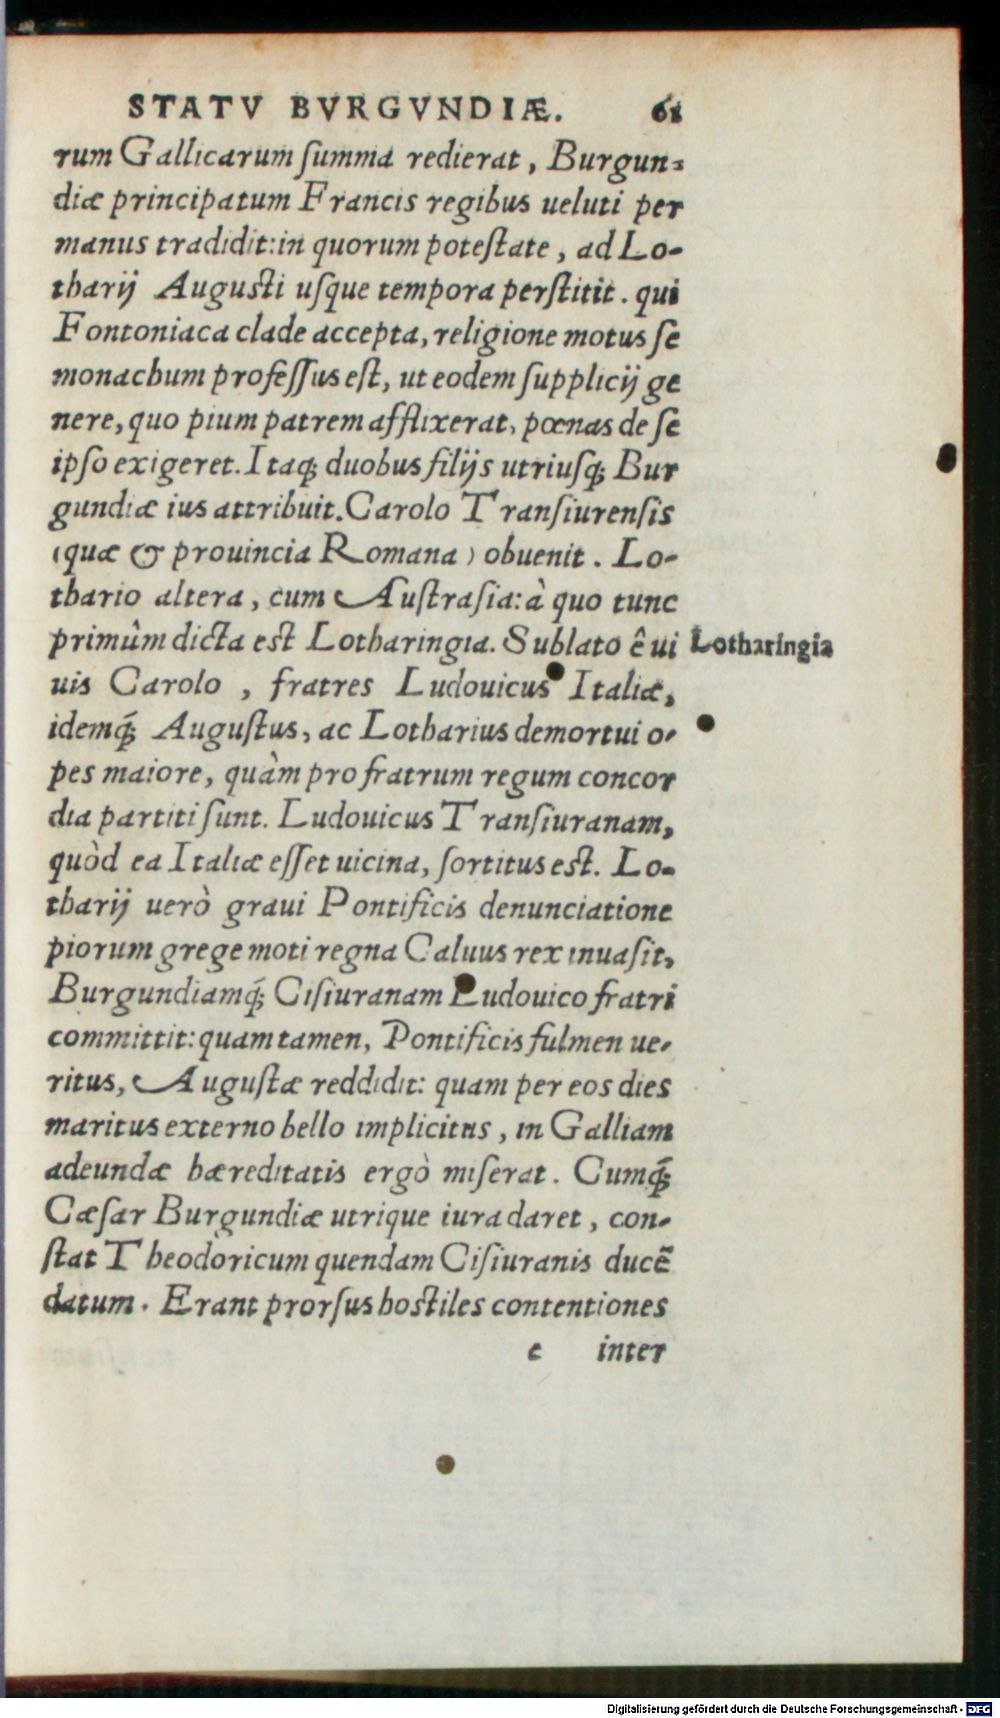 STATV BVRGVNDIÆ. 61
rum Gallicarum ſumma redierat, Burgun-
diæ principatum Francis regibus ueluti per
manus tradidit: in quorum poteſtate, ad Lo-
tharij Auguſti uſque tempora perſtitit. qui
Fontoniaca clade accepta, religione motus ſe
monachum profeſſus eſt, ut eodem ſupplicij ge
nere, quo pium patrem afflixerat, pœnas de ſe
ipſo exigeret. Itaq; duobus filijs utriuſq; Bur
gundiæ ius attribuit. Carolo Tranſiurenſis
(quæ & prouincia Romana) obuenit. Lo-
thario altera, cum Auſtraſia: à quo tunc
primûm dicta eſt Lotharingia. Sublato ê ui
Lotharingia
uis Carolo, fratres Ludouicus Italiæ,
idemq́; Auguſtus, ac Lotharius demortui o-
pes maiore, quàm pro fratrum regum concor
dia partiti ſunt. Ludouicus Tranſiuranam,
quòd ea Italiæ eſſet uicina, ſortitus eſt. Lo-
tharij uerò graui Pontificis denunciatione
piorum grege moti regna Caluus rex inuaſit,
Burgundiamq́; Ciſiuranam Ludouico fratri
committit: quam tamen, Pontificis fulmen ue-
ritus, Auguſtæ reddidit: quam per eos dies
maritus externo bello implicitus, in Galliam
adeundæ hæreditatis ergò miſerat. Cumq́;
Cæſar Burgundiæ utrique iura daret, con-
ſtat Theodoricum quendam Ciſiuranis ducē
datum. Erant prorſus hoſtiles contentiones
e inter
Digitalisierung gefördert durch die Deutsche Forschungsgemeinschaft - DFG